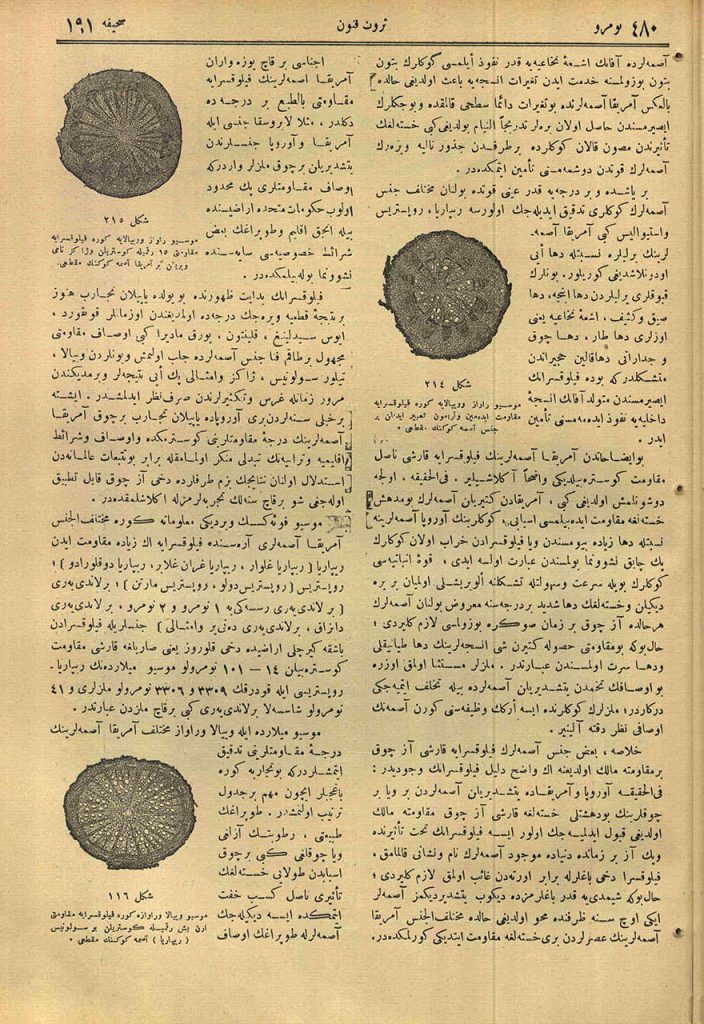 ٤٨٠ نومرو
ثروت فنون
صحیفه ١٩١
آصمه‌لرده آفاتك اشعهٔ نخاعیه‌یه قدر نفوذ ایلمسی كوكلرك بتون
بتون بوزولمسنه خدمت ایدن تغیرات انسجه‌یه باعث اولدیغی حالده
بالعكس آمریقا آصمه‌لرنده بوتغیرات دائما سطحی قالمقده وبوجكلرك
ایصیرمسندن حاصل اولان یره‌لر تدریجاً التیام بولدیغی كبی خسته‌لغك
تأثیرندن مصون قالان كوكلرده برطرفدن جذور تالیه ویره‌رك
آصمه‌لرك قوتدن دوشمه‌مسنی تأمین ایتمكده‌در.
بر یاشده و بر درجه‌یه قدر عینی قوتده بولنان مختلف جنس
آصمه‌لرك كوكلری تدقیق ایدیله‌جك اولورسه ریپاریا، روپستریس
واستیوالیس كبی آمریقا آصمه‌
لرینك یرلیلره نسبتله دها أیی
اودونلاشدیغی كوریلور. بونلرك
قبوقلری یرلیلردن دها اینجه، دها
صیق وكثیف، اشعهٔ نخاعیه یعنی
اوزلری دها طار، دها چوق
و جدارانی دهاقالین حجیراتدن
متشكلدركه بوده فیلوقسرانك
ایصیرمسندن متولد آفاتك انسجهٔ
داخلیه‌یه نفوذ ایده‌مه‌مسنی تأمین
ایدر.
شكل ٢١٤
موسیو راواز وویبالایه كوره فیلوقسرایه
مقاومت ایده‌مین وترامون تعبیر ایدیلن بر
جنس آصمه كوكنك مقطعی.
بوایضاحاتدن آمریقا آصمه‌لرینك فیلوقسرایه قارشی ناصل
مقاومت كوستره‌بیلدیكی واضحاً آكلاشیلیر. فی‌الحقیقه، اولجه
دوشونلمش اولدیغی كبی، آمریقادن كتیریلن آصمه‌لرك بومدهش
خسته‌لغه مقاومت ایده‌بیلمسی اسبابی كوكلرینك آوروپا آصمه‌لرینه
نسبتله دها زیاده بیومسندن ویا فیلوقسرادن خراب اولان كوكلرك
پك چابق نشوونما بولمسندن عبارت اولسه ایدی، قوهٔ انباتیه‌سی
كوكلرك بویله سرعت وسهولتله تشكلنه ألویریشلی اولمیان بر یره
دیكیلن وخسته‌لغك دها شدید بر درجه‌سنه معروض بولنان آصمه‌لرك
هرحالده آز چوق بر زمان صوكره بوزولمسی لازم كلیردی؛
حال‌بوكه بومقاومتی حصوله كتیرن شی انسجه‌لرینك دها طیانیقلی
ودها سرت اولمسندن عبارتدر. ملزلر مستثنا اولمق اوزره
بو اوصافك تخمدن یتشدیریلن آصمه‌لرده بیله تخلف ایتمیه‌جكی
دركاردر؛ ملزلرك كوكلرنده ایسه أركك وظیفه‌سنی كورن آصمه‌نك
اوصافی نظر دقته آلینیر.
خلاصه، بعض جنس آصمه‌لرك فیلوقسرایه قارشی آز چوق
برمقاومته مالك اولدیغنه اك واضح دلیل فیلوقسرانك وجودیدر:
فی‌الحقیقه آوروپا وآمریقاده یتشدیریلن آصمه‌لردن بر ویا بر
چوقلرینك بودهشتلی خسته‌لغه قارشی آز چوق مقاومته مالك
اولدیغی قبول ایدلمیه‌جك اولور ایسه فیلوقسرانك تحت تأثیرنده
وپك آز بر زمانده دنیاده موجود آصمه‌لرك نام ونشانی قالمامق،
فیلوقسرا دخی باغلرله برابر اورته‌دن غائب اولمق لازم كلیردی؛
حال‌بوكه شیمدی‌یه قدر باغلرمزده دیكوب یتشدیردیكمز آصمه‌لر
ایكی اوچ سنه ظرفنده محو اولدیغی حالده مختلف‌الجنس آمریقا
آصمه‌لرینك عصرلردن بری خسته‌لغه مقاومت ایتدیكی كورلمكده‌در.
اجناسی بر قاچ یوزه واران
آمریقا آصمه‌لرینك فیلوقسرایه
مقاومتی بالطبع بر درجه‌ده
دكلدر، مثلا لابروسقا جنسی ایله
آمریقا و آوروپا جنسلرندن
یتشدیریلن برچوق ملزلر واردركه
اوصاف مقاومتلری پك محدود
اولوب حكومات متحده اراضیسنده
بیله انجق اقلیم وطوپراغك بعض
شرائط خصوصیه‌سی سایه‌سنده
نشوونما بوله‌بیلمكده‌در.
شكل ٢١٥
موسیو راواز وویبالایه كوره فیلوقسرایه
مقاومتی ١٥ رقمیله كوستریلن وژاكز نامی
ویریلن بر آمریقا آصمه كوكنك مقطعی.
فیلوقسرانك بدایت ظهورنده بو یولده یاپیلان تجارب هنوز
برنتیجهٔ قطعیه ویره‌جك درجه‌ده اولمدیغندن اوزمانلر قونقورد،
ایوس سیدلینغ، قلینتون، یورق مادیرا كبی اوصاف مقاومتی
مجهول برطاقم فنا جنس آصمه‌لرده جلب اولنمش وبونلردن ویبالا،
تیلور سولونیس، ژاكز وامثالی پك أیی نتیجه‌لر ویرمدیكندن
مرور زمانله غرس وتكثیرلرندن صرف‌نظر ایدلمشدر. ایشته
برخیلی سنه‌لردن‌بری آوروپاده یاپیلان تجارب برچوق آمریقا
آصمه‌لرینك درجهٔ مقاومتلرینی كوسترمكده واوصاف وشرائط
اقلیمیه وترابیه‌نك تبدلی منكر اولمامقله برابر بوتتبعات عالمانه‌دن
استدلال اولنان نتایجك بزم طرفلرده دخی آز چوق قابل تطبیق
اوله‌جغی شو برقاچ سنه‌لك تجربه‌لرمزله اكلاشلمقده‌در.
موسیو فوئه‌كسك ویردیكی معلوماته كوره مختلف‌الجنس
آمریقا آصمه‌لری آره‌سنده فیلوقسرایه اك زیاده مقاومت ایدن
ریپاریا (ریپاریا غلوار، ریپاریا غران غلابر، ریپاریا دوقلورادو)؛
روپستریس (روپستریس‌دولو، روپستریس مارتن)؛ برلاندی‌یه‌ری
(برلاندی‌یه‌ری رسسكی‌یه ١ نومرو و ٢ نومرو، برلاندی‌یه‌ری
دانزاق، برلاندی‌یه‌ری ده‌نی‌یر وامثالی) جنسلریله فیلوقسرادن
باشقه كیرجلی اراضیده دخی قلوروز یعنی صاریلغه قارشی مقاومت
كوستره‌بیلن ١٤ — ١٠١ نومرولو موسیو میلارده‌نك ریپاریا-
روپستریسی ایله قودرقك ٣٣٠٩ و ٣٣٠٦ نومرولو ملزلری و ٤١
نومرولو شاسسه‌لا برلاندی‌یه‌ری كبی برقاچ ملزدن عبارتدر.
موسیو میلارده ایله ویبالا وراواز مختلف آمریقا آصمه‌لرینك
درجهٔ مقاومتلرینی تدقیق
ایتمشلردركه بوتجاربه كوره
باغجیلر ایچون مهم برجدول
ترتیب اولنمشدر. طوپراغك
طبیعتی، رطوبتك آزلغی
ویا چوقلغی كبی برچوق
اسبابدن طولایی خسته‌لغك
تأثیری ناصل كسب خفت
ایتمكده ایسه دیكیله‌جك
آصمه‌لرله طوپراغك اوصاف
شكل ١١٦
موسیو ویبالا وراوازه كوره فیلوقسرایه مقاومتی
اون بش رقمیله كوستریلن بر سولونیس
(ریپاریا) آصمه كوكنك مقطعی.